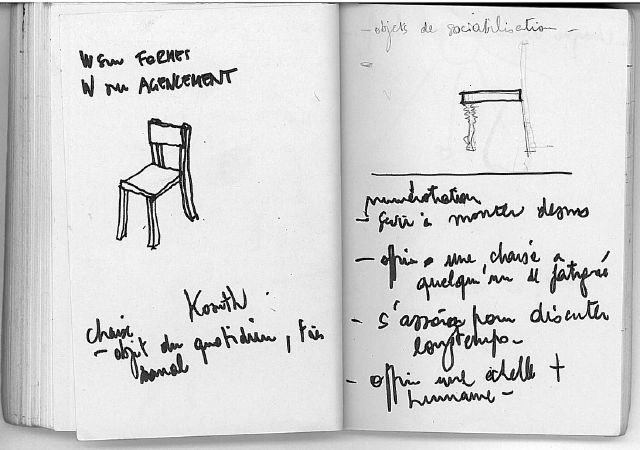 W sur FORMES
W sur AGENCEMENT
Kosuth
chaise
- objet du quotidien, très
banal
- objets de sociabilisation -
- servir à monter dessus
- offrir une chaise à
quelqu'un de fatigué
- s'asseoir pour discuter
longtemps -
- offrir une échelle +
humaine -